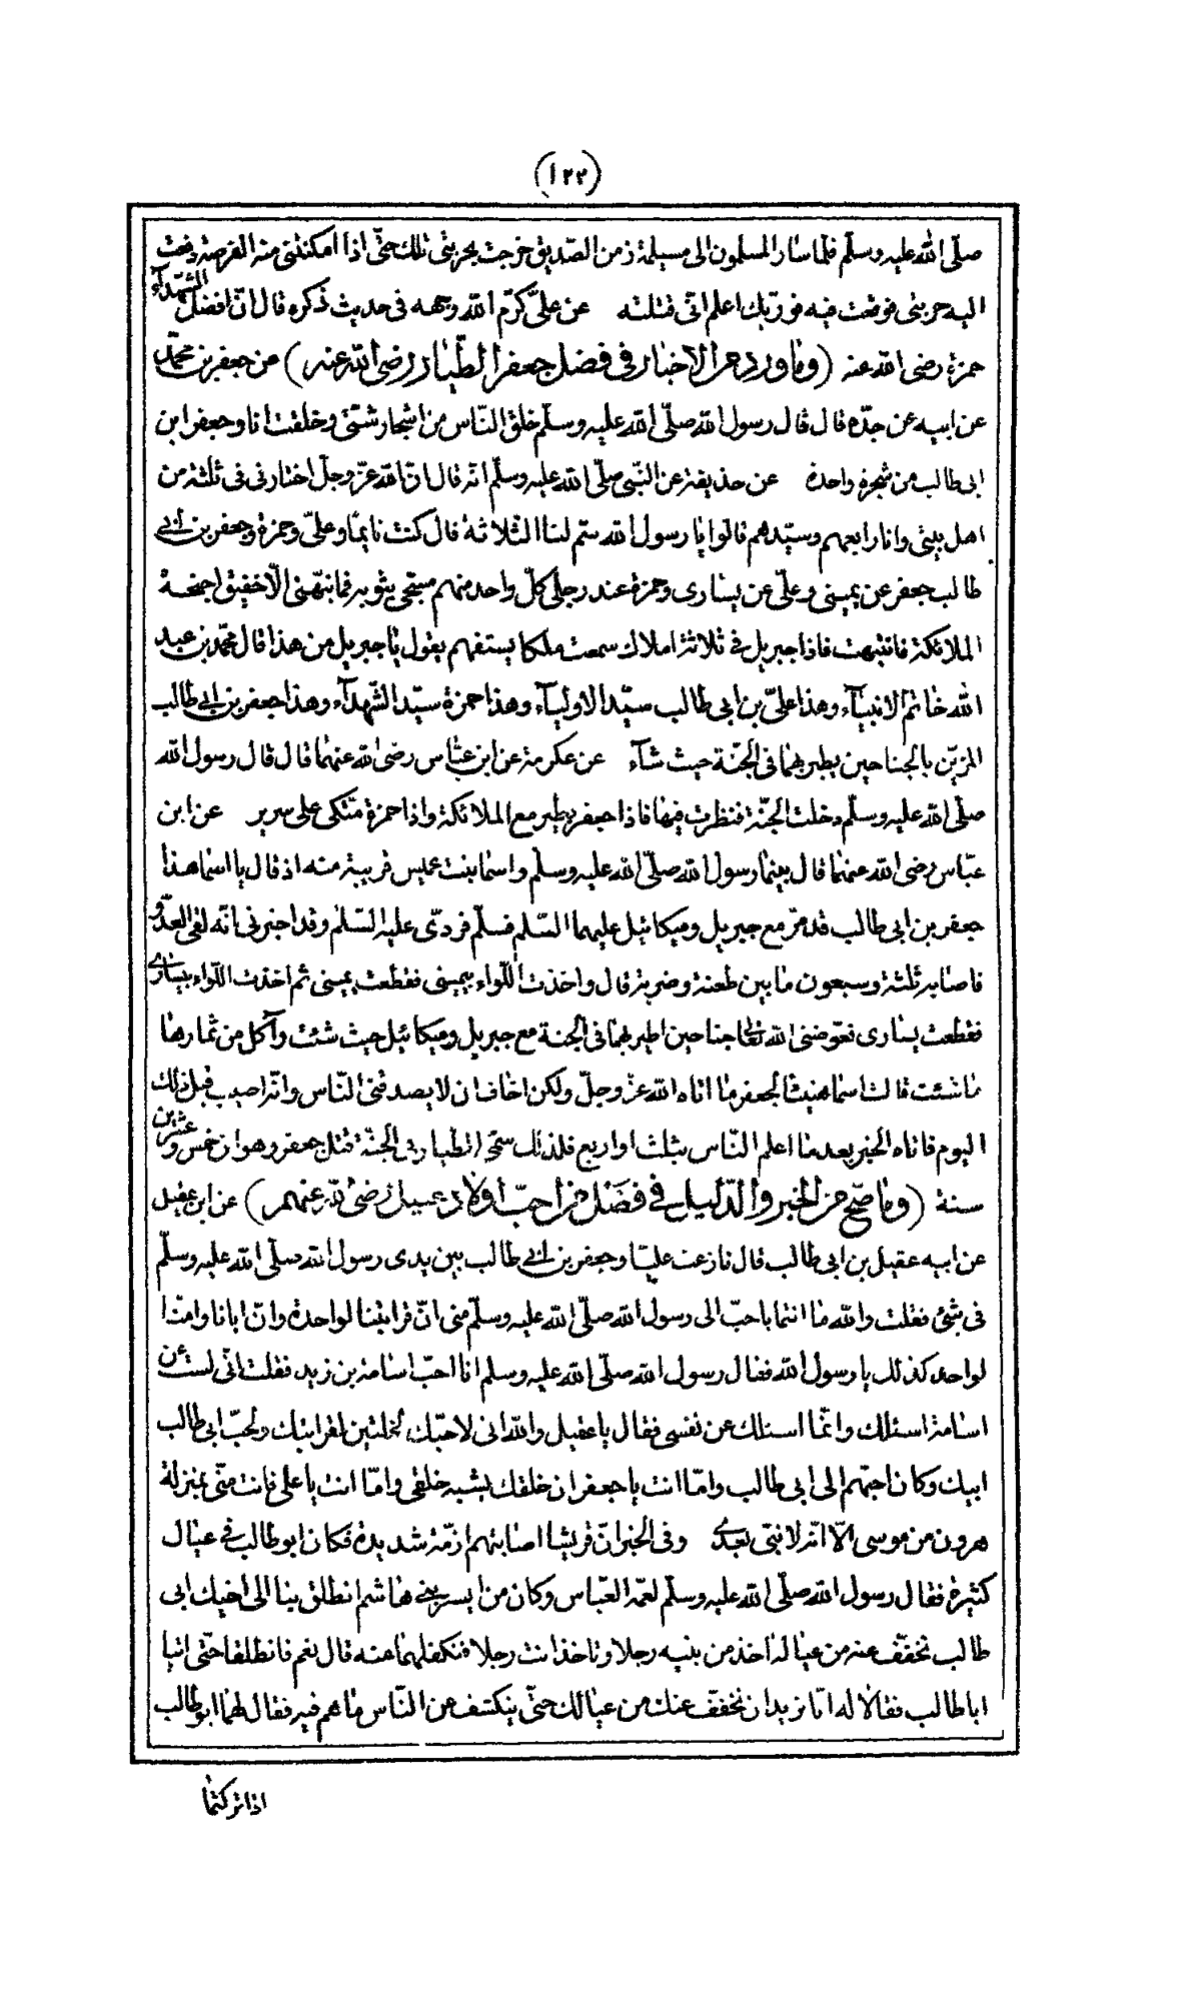 (١٢٢)
صلّى الله عليه وسلّم فلما سار المسلمون الى مسيلمة زمن الصديق خرجت بحربتى تلك حتّى اذا امكنتنى منه الفرصة دفعت
اليه حربتى فوقعت فيه فوربك اعلم انى قتلته عن علىّ كرّم الله وجهه فى حديث ذكره قال انّ افضل الشهدآء
حمزة رضى الله عنه (وما ورد من الاخبار فى فضل جعفر الطيّار رضى الله عنه) عن جعفر بن محمّد
عن ابيه عن جدّه قال قال رسول الله صلّى الله عليه وسلّم خلق النّاس من اشجار شتّى وخلقت انا وجعفر ابن
ابى طالب من شجرة واحدة عن حذيفة عن النّبى صلّى الله عليه وسلّم انّه قال ان الله عزّ وجلّ اختارنى فى ثلثة من
اهل بيتى وانا رابعهم وسيّدهم قالوا يا رسول الله سمّ لنا الثلاثة قال كنت نايما وعلىّ وحمزة وجعفر بن ابى
طالب جعفر عن يمينى وعلّى عن يسارى وحمزة عند رجلى كلّ واحد منهم مسجّى بثوبه فما نبّهنى الّا خفيق اجنحة
الملائكة فانتبهت فاذا جبريل فى ثلاثة املاك سمعت ملكا يستفهم يقول يا جبريل من هذا قال محمّد بن عبد
الله خاتم الانبيآء وهذا علىّ بن ابى طالب سيّد الاوليآء وهذا حمزة سيّد الشّهدآء وهذا جعفر بن ابى طالب
المزيّن بالجناحين يطير بهما فى الجنّة حيث شآء عن عكرمة عن ابن عبّاس رضى الله عنهما قال قال رسول الله
صلّى الله عليه وسلّم دخلت الجنّة فنظرت فيها فاذا جعفر يطير مع الملائكة واذا حمزة متّكى على سرير عن ابن
عبّاس رضى الله عنهما قال بينما رسول الله صلّى الله عليه وسلّم واسما بنت عميس قريبة منه اذ قال يا اسما هذا
جعفر بن ابى طالب قد مرّ مع جبريل وميكائيل عليهما السّلم فسلّم فردّى عليه السّلام وقد اخبرنى انّه لقى العدّو
فاصابه ثلثة وسبعون ما بين طعنة وضربة قال واخذت اللّواء بيمينى فقطعت يمينى ثم اخذت اللّواء بيسارى
فقطعت يسارى فعوّضنى الله تعالى جناحين اطير بهما فى الجنة مع جبريل وميكائيل حيث شئت وآكل من ثمارها
ما شئت قالت اسما هنيئا لجعفر ما اتاه الله عزّ وجلّ ولكن اخاف ان لا يصدقنى النّاس وانّه اصيب قبل ذلك
اليوم فاتاه الخبر بعد ما اعلم النّاس بثلث او اربع فلذلك سمّى الطيار فى الجنّة قتل جعفر وهو ابن خمس وعشرين
سنة (وما صحّ من الخبر والدّليل فى فضل من احبّ اولاد عقيل رضى الله عنهم) عن ابن عقيل
عن ابيه عقيل بن ابى طالب قال نازعت عليّا وجعفر بن ابى طالب بين يدى رسول الله صلّى الله عليه وسلّم
فى شئ فقلت والله ما انتما باحبّ الى رسول الله صلّى الله عليه وسلّم منى انّ قرابتنا لواحدة وانّ ابانا وامّنا
لواحد كذلك يا رسول الله فقال رسول الله صلّى الله عليه وسلم انا احبّ اسامة بن زيد فقلت انّى لست عن
اسامة اسئلك وانّما اسئلك عن نفسى فقال يا عقيل والله انى لاحبّك لخلتين لقرابتك ولحبّ ابى طالب
ابيك وكان احبّهم الى ابى طالب وامّا انت يا جعفر ان خلقك يشبه خلقى وامّا انت يا على فانت منّى بمنزلة
هرون من موسى الّا انّه لا نبى بعدى وفى الخبر انّ قريشا اصابتهم ازمّة شديدة فكان ابو طالب فى عيال
كثيرة فقال رسول الله صلّى الله عليه وسلّم لعمّه العبّاس وكان من ايسر بنى هاشم انطلق بنا الى اخيك ابى
طالب نخفّف عنه من عياله اخذ من بنيه رجلا وتاخذ انت رجلا فنكفلهما عنه قال نعم فانطلقا حتّى اتيا
ابا طالب فقالا له انّا نريد ان نخفّف عنك من عيالك حتّى ينكشف عن النّاس ما هم فيه فقال لهما ابو طالب
اذا تركتما